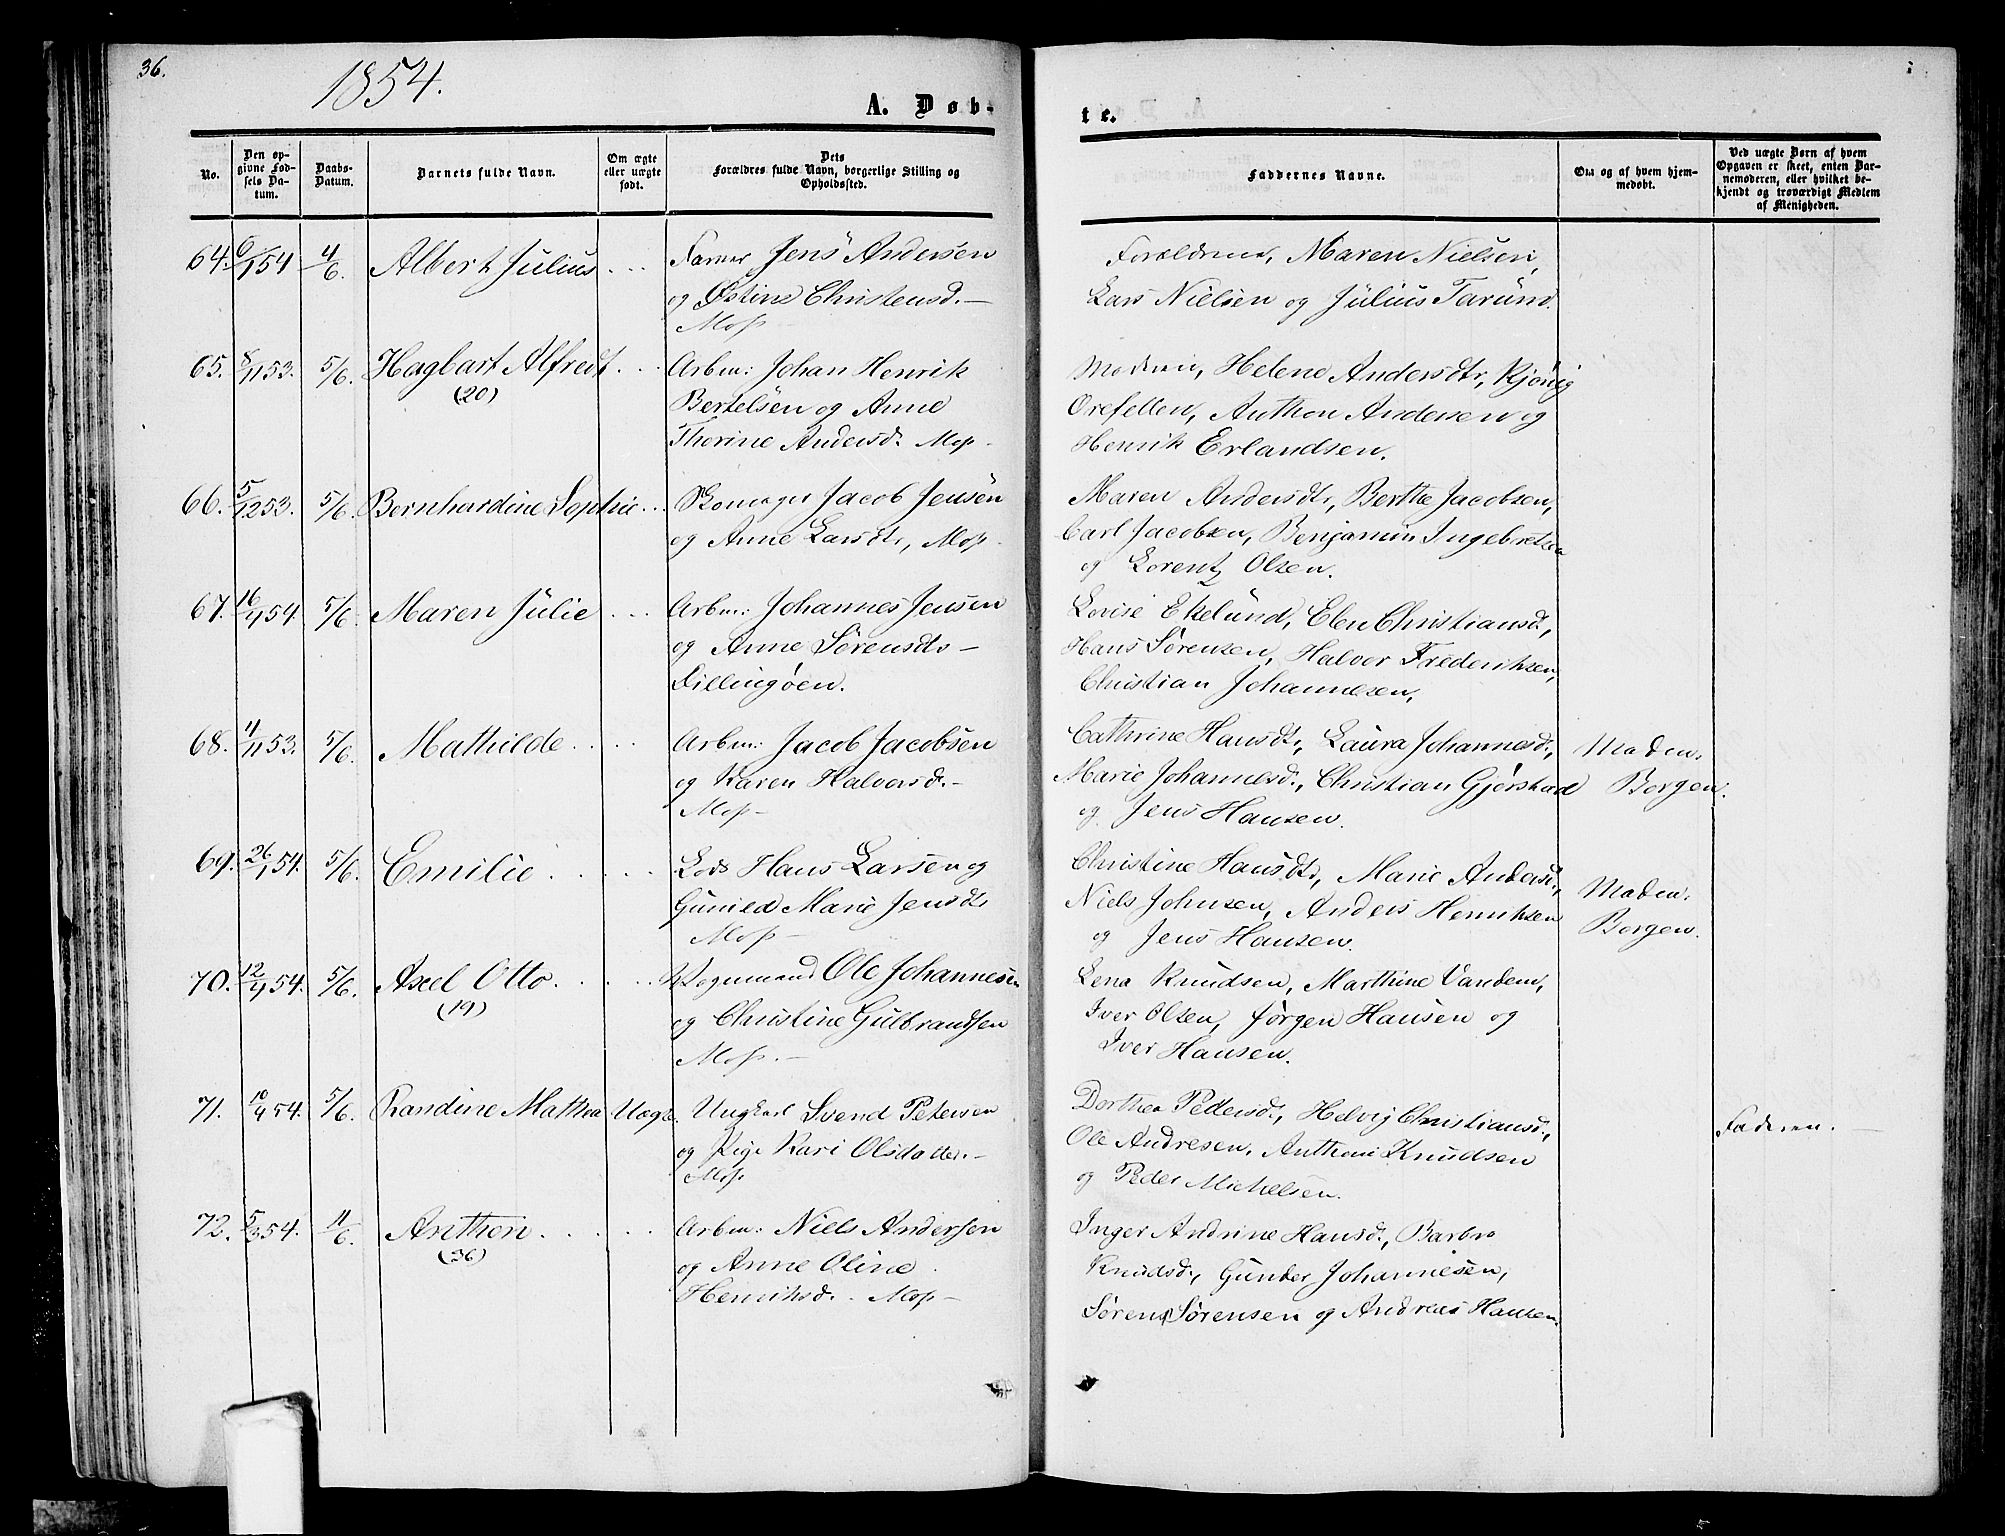 36.
1854.
A. Døb-
te.
No.
Den op-
givne Fød-
sels Da-
tum.
Daabs-
Datum.
Barnets fulde Navn.
Om ægte
eller uægte
født.
Dets
Forældres fulde Navn, borgerlige Stilling og
Opholdssted.
Faddernes Navne.
Om og af hvem hjem-
medøbt.
Ved uægte Børn af hvem
Opgaven er skeet, enten Bar-
nemoderen, eller hvilket be-
kjendt og troværdigt Medlem
af Menigheden.
64. 6/1 54 4/6. Albert Julius . . . Farver Jens Andersen
og Østine Christensd. –
Moss
Forældrene, Maren Nielsen,
Lars Nielsen og Julius Tarund.
65. 8/11 53. 5/6. Hagbart Alfredt . . . Arbm: Johan Henrik
(20) Bertelsen og Anne
Thorine Andersd. Moss.
Moderen, Helene Andersdtr, Kjønig
Orefellen, Anthon Andersen og
Henrik Erlandsen.
66. 5/12 53. 5/6. Bernhardine Sophie . . . Skomager Jacob Jensen
og Anne Larsdtr, Moss.
Maren Andersdtr, Berthe Jacobsen,
Carl Jacobsen, Benjamin Ingebretsen
og Lorentz Olsen.
67. 16/1 54. 5/6. Maren Julie . . . Arbm: Johannes Jensen
og Anne Sørensdtr –
Dillingøen.
Lovise Ekelund, Elen Christiansd.,
Hans Sørensen, Halvor Frederiksen,
Christian Johannesen,
68. 4/11 53. 5/6. Mathilde . . . . Arbm: Jacob Jacobsen
og Karen Halvorsd. –
Moss –
Cathrine Hansdtr, Laura Johannesd.,
Marie Johannesd., Christian Gjerstad
og Jens Hansen.
Maden.
Borgen.
69. 26/1 54. 5/6. Emilie . . . . . Lods Hans Larsen og
Gunild Marie Jensdtr
Moss –
Christine Hansdtr, Marie Andersd.,
Niels Johnsen, Anders Henriksen
og Jens Hansen.
Maden.
Borgen.
70. 12/4 54. 5/6. Axel Otto . . . . Vognmand Ole Johannesen
(19) og Christine Gulbrandsen
Moss. –
Lena Knudsen, Marthine Vandem,
Iver Olsen, Jørgen Hansen og
Iver Hansen.
71. 10/4 54. 5/6. Randine Mathea Uægt. Ungkarl Svend Petersen
og Pige Kari Olsdatter. –
Moss
Dorthea Pedersd., Helvig Christiansd.,
Ole Andresen, Anthoni Knudsen
og Peder Michelsen.
Faderen. –
72. 5/3 54. 11/6. Anthon . . . . . Arbm: Niels Andersen
(36) og Anne Oline
Henriksd. Moss –
Inger Andrine Hansd., Barbro
Knudsd., Gunder Johannesen,
Søren Sørensen og Andreas Hansen.